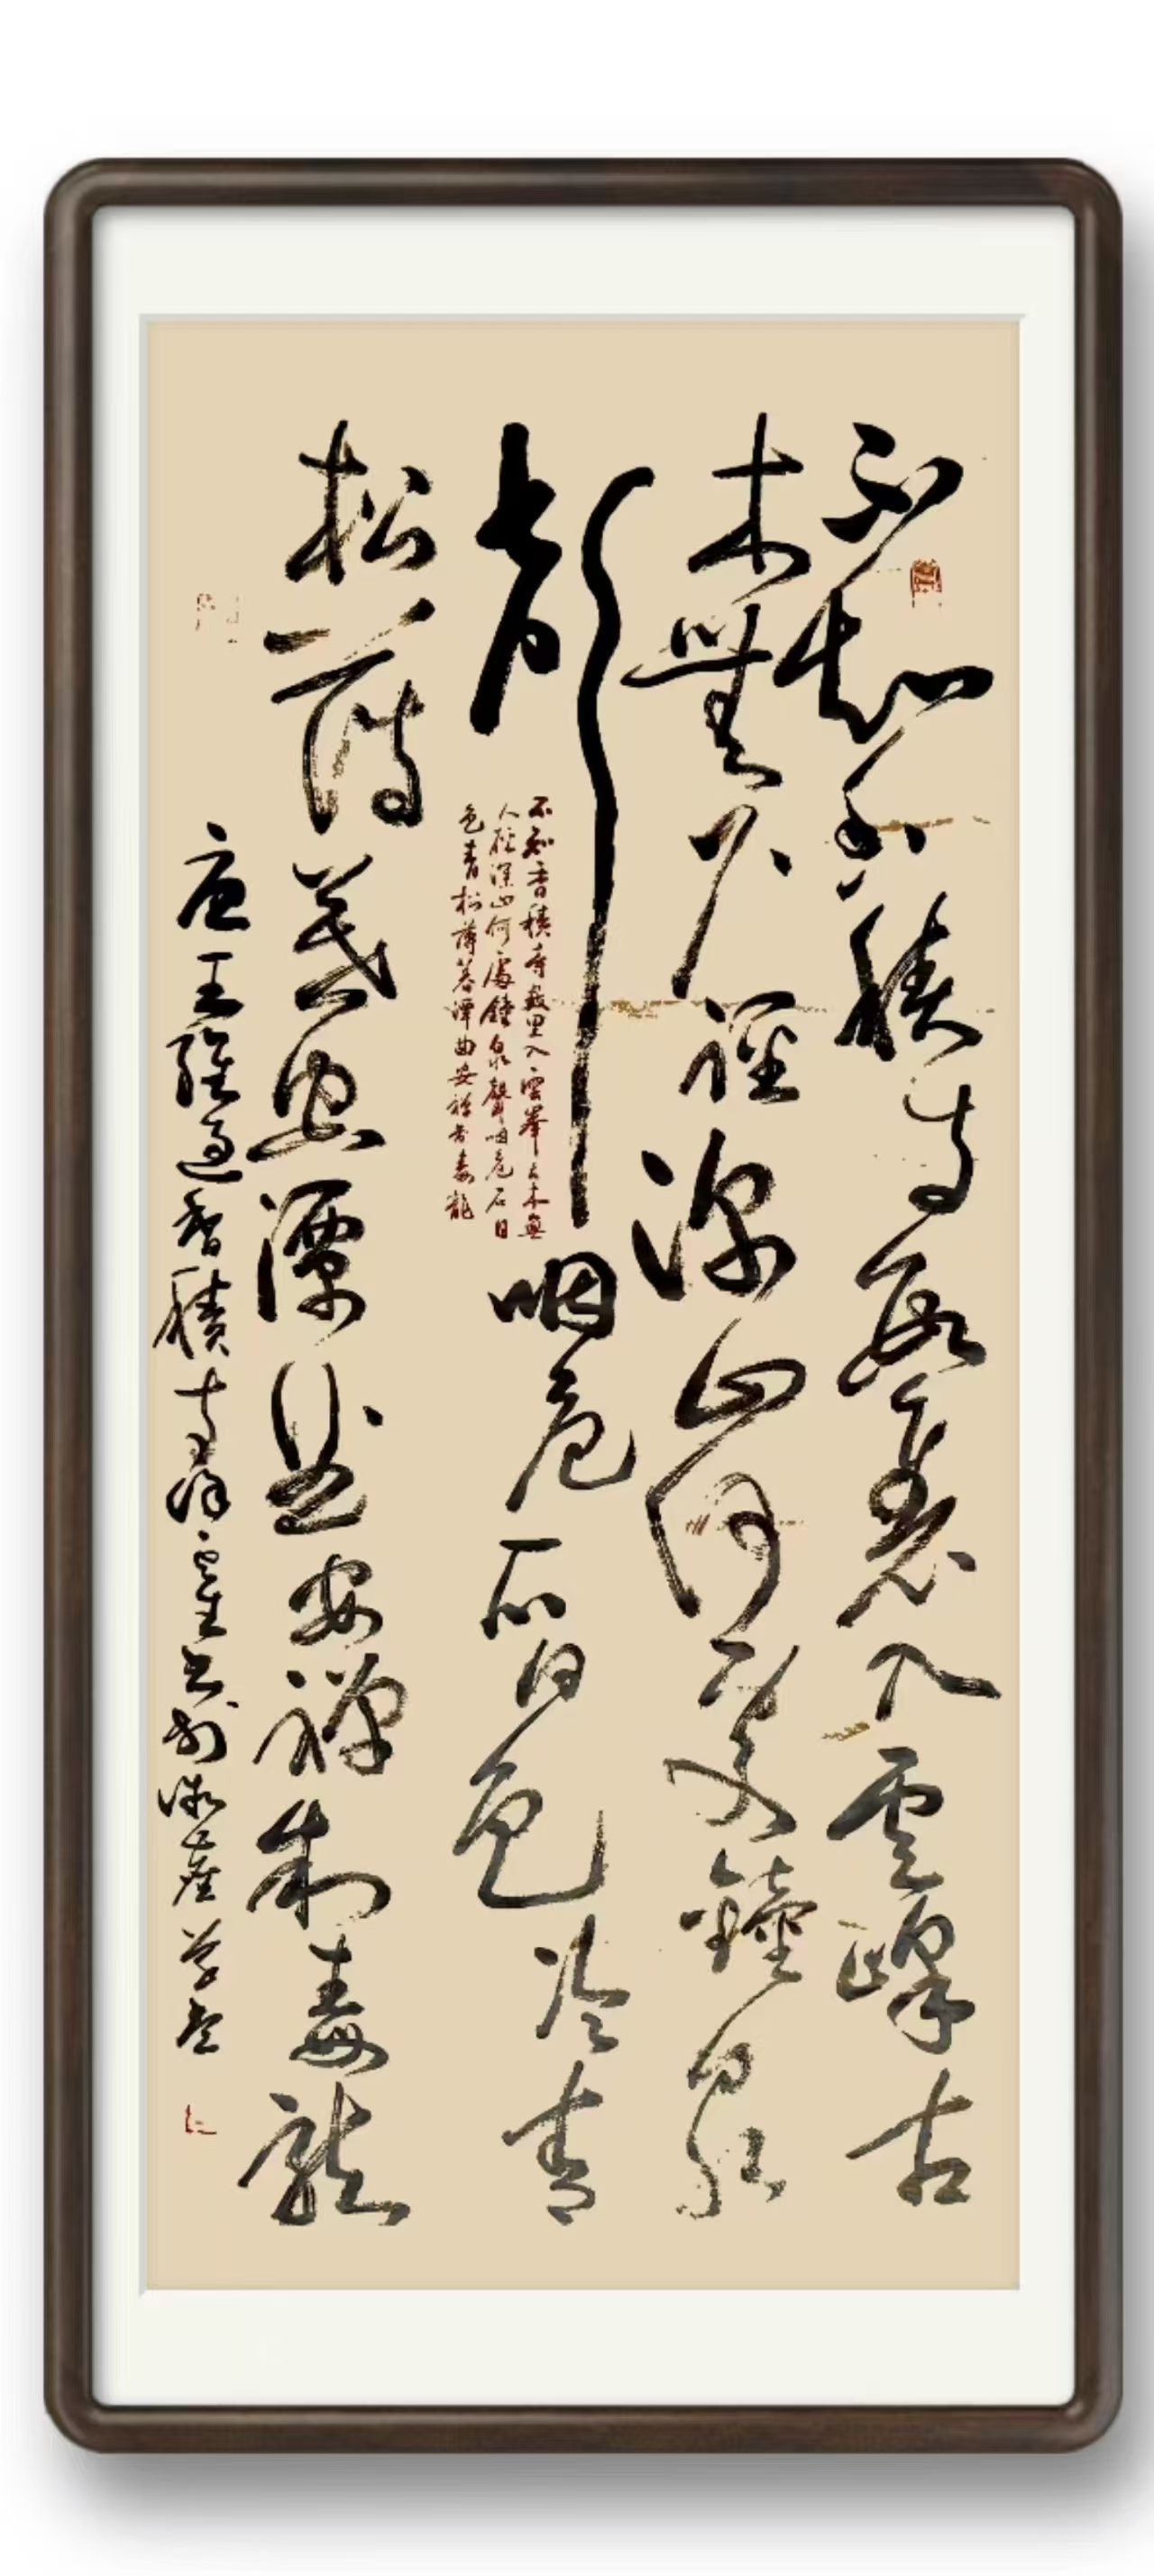 不知香積寺數里入雲峰古
木無人徑深山何處鐘泉
聲咽危石日色冷青
不知香積寺數里入雲峯古木無
人徑深山何處鐘泉聲咽危石日
色青松薄暮潭曲安禪制毒龍
松薄暮空潭曲安禪制毒龍
唐王維過香積寺詩